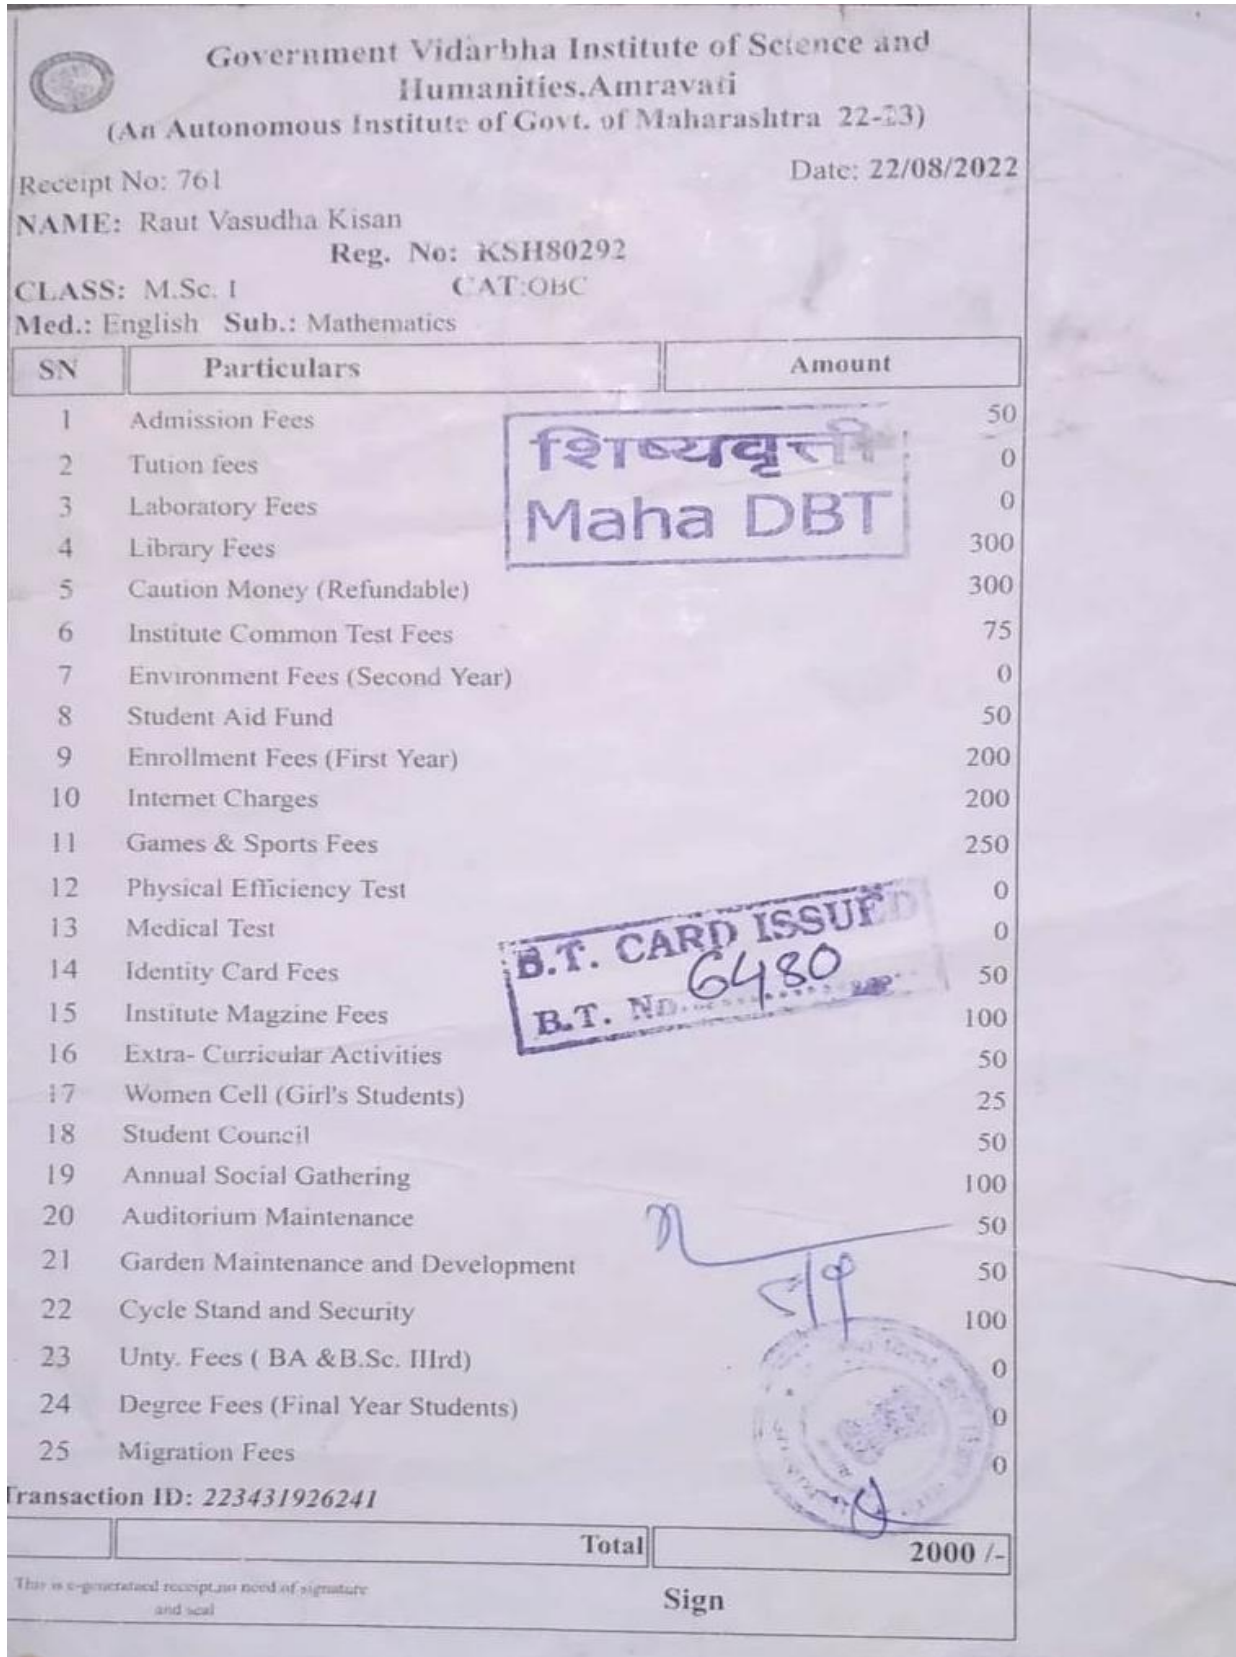 Government Vidarbha Institute of Science and
Humanities,Amravati
(An Autonomous Institute of Govt. of Maharashtra 22-23)
Receipt No: 761 Date: 22/08/2022
NAME: Raut Vasudha Kisan
Reg. No: KSH80292
CLASS: M.Sc. I CAT:OBC
Med.: English Sub.: Mathematics
SN Particulars Amount
1 Admission Fees 50
शिष्यवृत्ती
2 Tution fees 0
3 Laboratory Fees 0
Maha DBT
4 Library Fees 300
5 Caution Money (Refundable) 300
6 Institute Common Test Fees 75
7 Environment Fees (Second Year) 0
8 Student Aid Fund 50
9 Enrollment Fees (First Year) 200
10 Internet Charges 200
11 Games & Sports Fees 250
12 Physical Efficiency Test 0
13 Medical Test 0
B.T. CARD ISSUED
14 Identity Card Fees 50
B.T. No. 6480
15 Institute Magzine Fees 100
16 Extra- Curricular Activities 50
17 Women Cell (Girl's Students) 25
18 Student Council 50
19 Annual Social Gathering 100
20 Auditorium Maintenance 50
21 Garden Maintenance and Development 50
22 Cycle Stand and Security 100
23 Unty. Fees ( BA &B.Sc. IIIrd) 0
24 Degree Fees (Final Year Students) 0
25 Migration Fees 0
Transaction ID: 223431926241
Total 2000 /-
This is e-generataed receipt,no need of signature
and seal
Sign